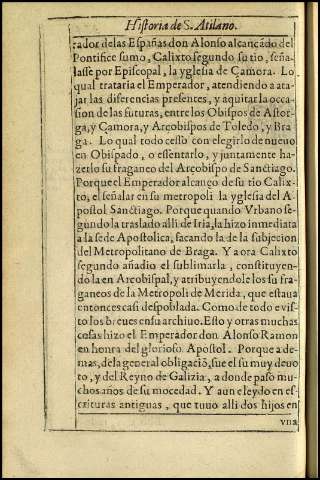 Historia de S. Atilano.
rador delas Españas don Alonso alcançãdo del
Pontifice sumo, Calixto segundo su tio, seña-
lasse por Episcopal, la yglesia de Çamora. Lo
qual trataria el Emperador, atendiendo a ata-
jar las diferencias presentes, y a quitar la occa-
sion de las futuras, entre los Obispos de Astor-
ga, y Çamora, y Arçobispos de Toledo, y Bra
ga. Lo qual todo cessò con elegirlo de nueuo
en Obispado, o essentarlo, y juntamente ha-
zerlo sufraganeo del Arçobispo de Sanctiago.
Porque el Emperador alcançò de su tio Calix-
to, el señalar en su metropoli la yglesia del A-
postol Sanctiago. Porque quando Vrbano se-
gundo la traslado alli de Iria, la hizo inmediata
a la sede Apostolica, sacando la de la subjecion
del Metropolitano de Braga. Y aora Calixto
segundo añadio el sublimarla, constituyen-
do la en Arçobispal, y atribuyendole los sufra-
ganeos de la Metropoli de Merida, que estaua
entonces casi despoblada. Como de todo e vis-
to los breues en su archiuo. Esto y otras muchas
cosas hizo el Emperador don Alonso Ramon
en honra del glorioso Apostol. Porque a de-
mas, de la general obligaciõ, fue el su muy deuo
to, y del Reyno de Galizia, a donde passo mu-
chos años de su mocedad. Y aun e leydo en es-
crituras antiguas, que tuuo alli dos hijos en
vna